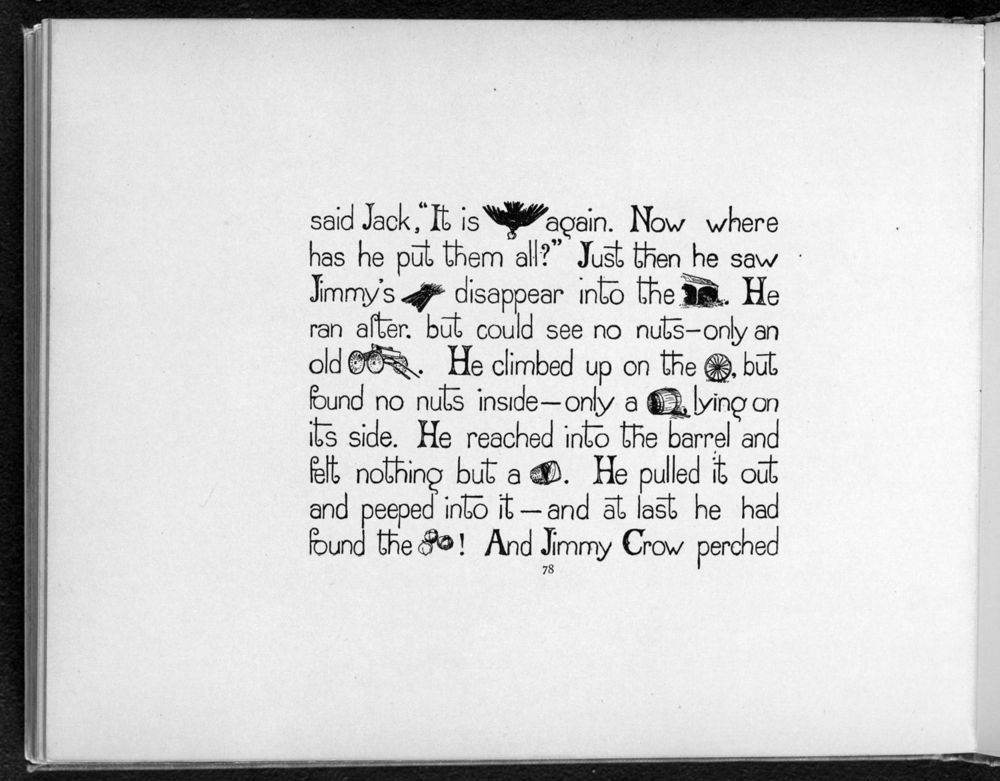 said Jack, "It is again. Now where
has he put them all?" Just then he saw
Jimmy's disappear into the . He
ran after. but could see no nuts—only an
old . He climbed up on the , but
found no nuts inside—only a lying on
its side. He reached into the barrel and
felt nothing but a . He pulled it out
and peeped into it—and at last he had
found the ! And Jimmy Crow perched
78